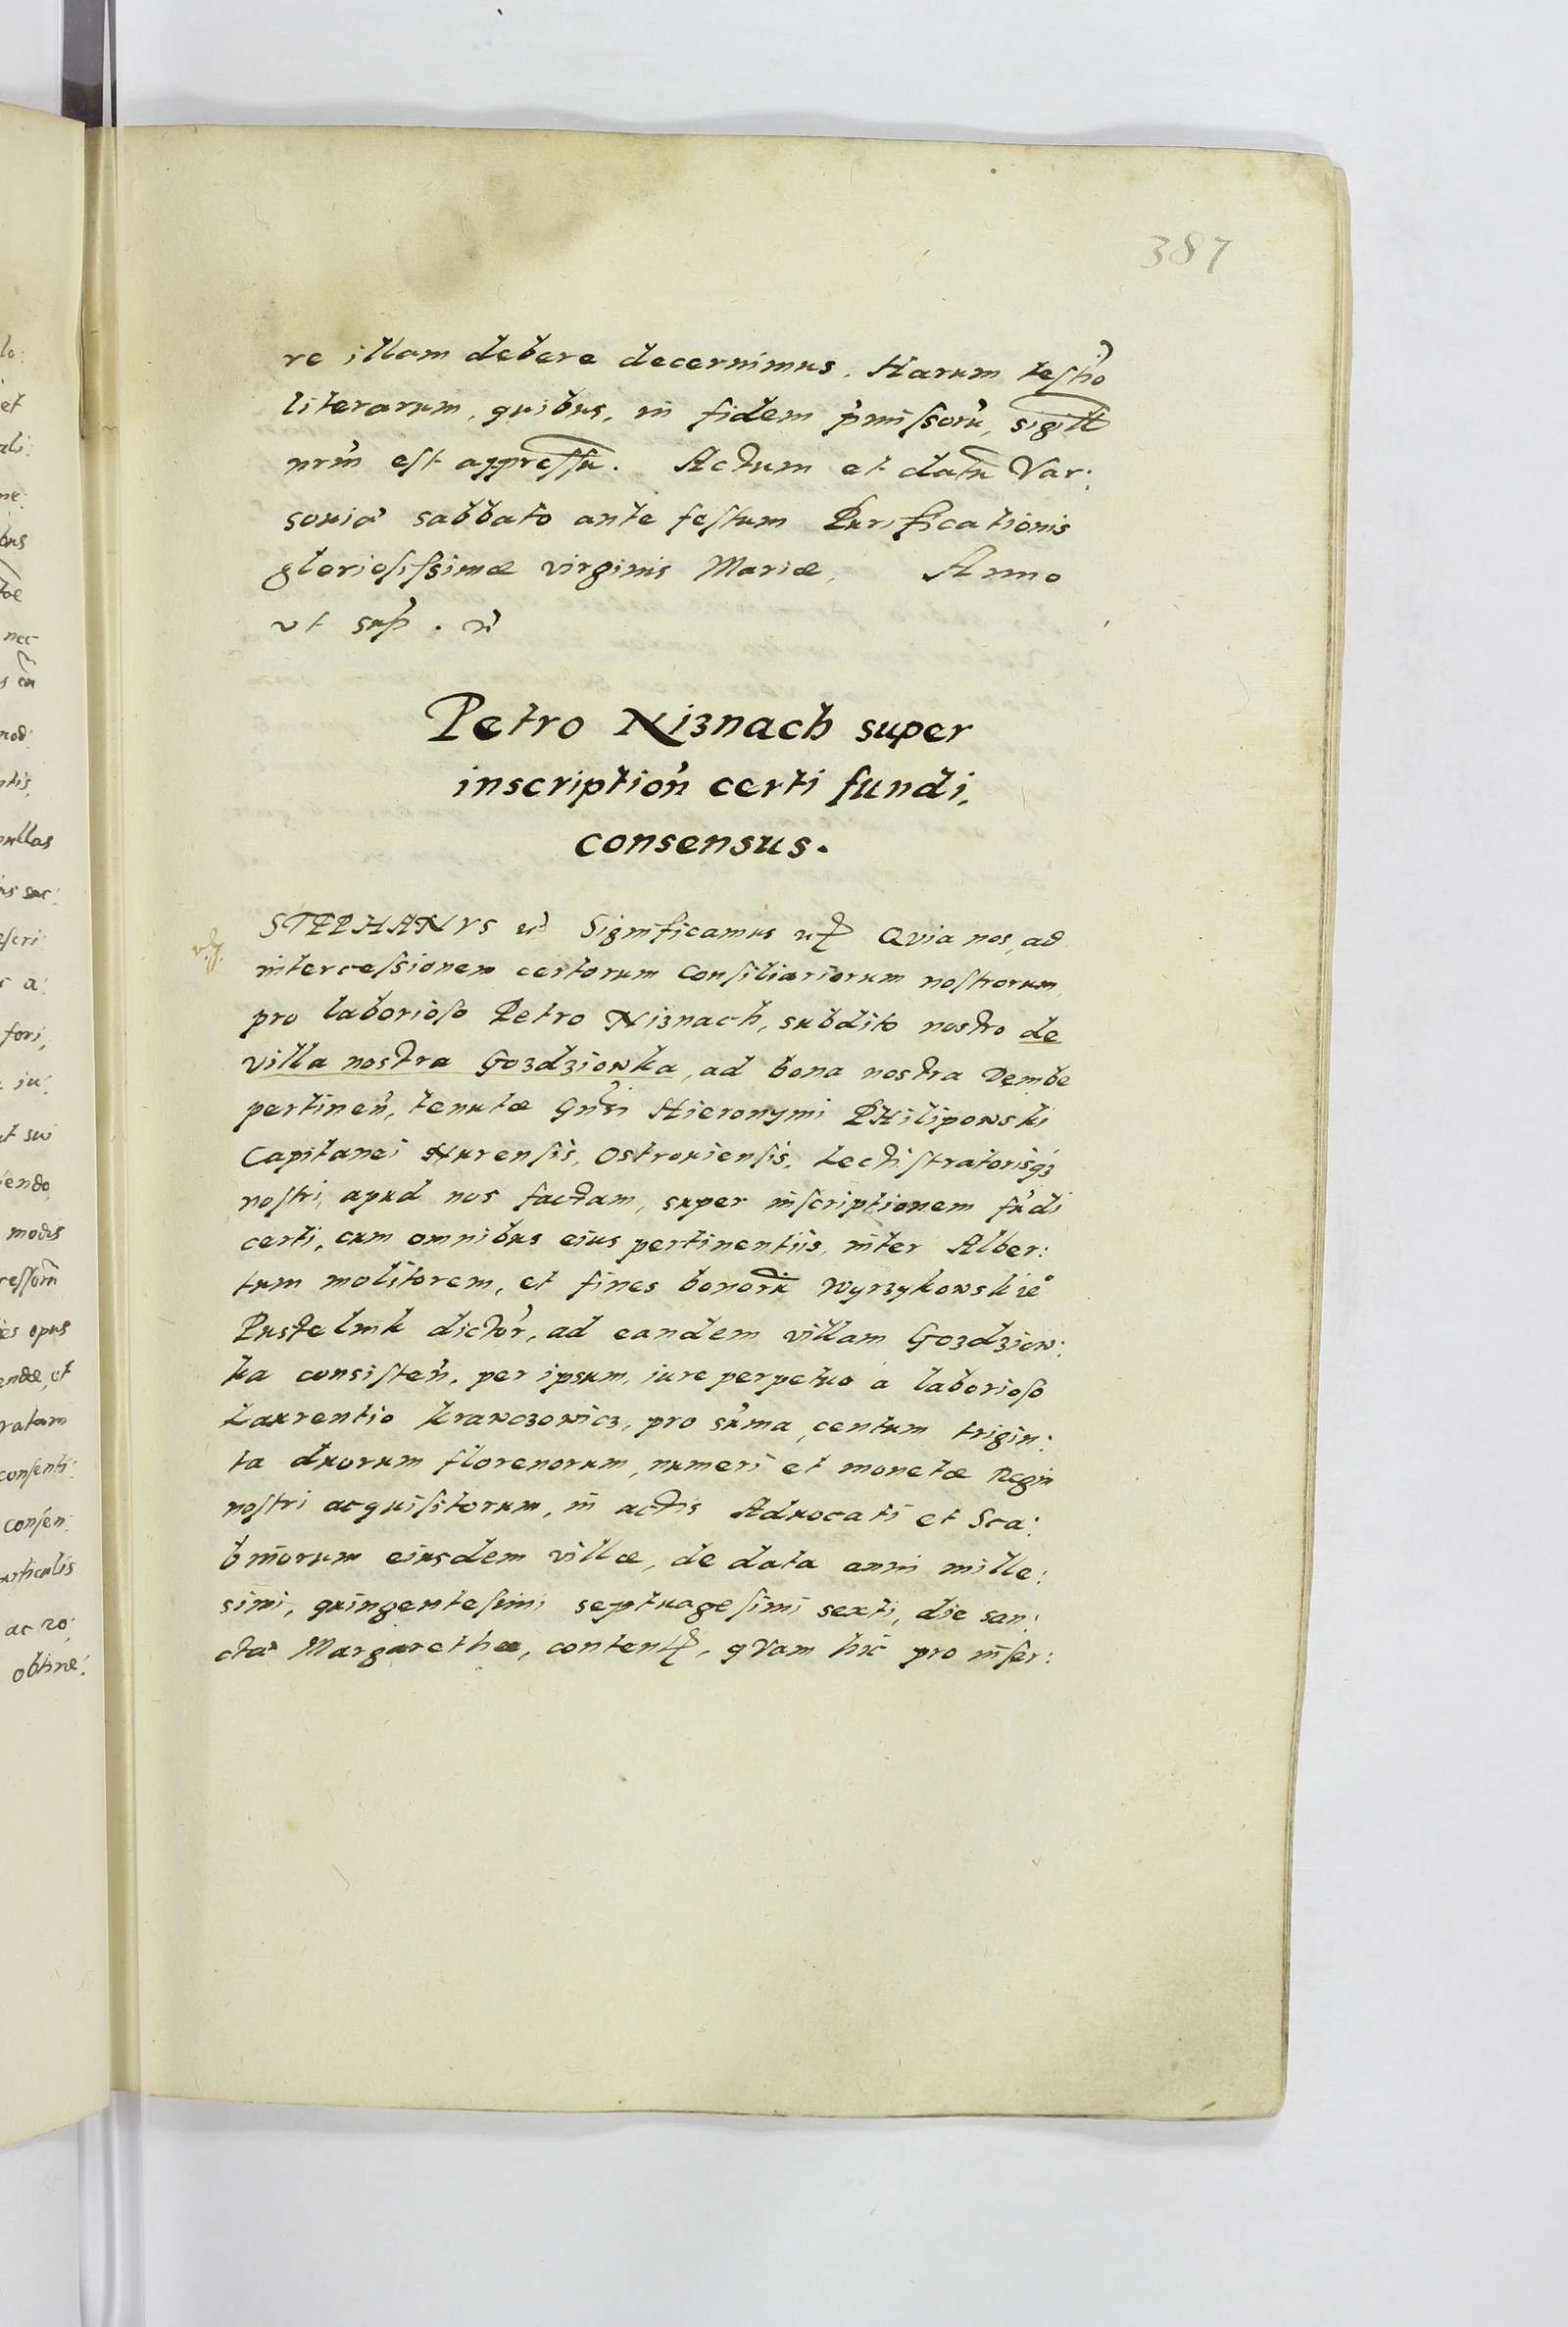 387
re illam debere decernimus. Harum testio
literarum, quibus, in fidem pmissoru, sigill
nrm est appressu. Actum et datu Var:
souiæ sabbato ante festum Purificationis
gloriosissimæ virginis Mariæ, Anno
vt sup.
Petro Niznach super
inscription certi fundi,
consensus.
STEPHANVS Significamus Qvia nos, ad
intercessionem certorum Consiliariorum nostrorum
pro laborioso Petro Niznach, subdito nostro de
villa nostra Gozdziowka, ad bona nostra Dembe
pertinen, tenutæ Gnsi Hieronymi PHilipowski
Capitanei Nurensis, Ostrouiensis, Lectistratorisqz
nostri, apud nos factam, super inscriptionem fudi
certi, cum omnibus eius pertinentiis, inter Alber:
tum molitorem, et fines bonoru Wyrzykowskie
Pustelnik dictor, ad eandem villam Gozdziow:
ka consisten, per ipsum, iure perpetuo a laborioso
Laurentio Krawczowicz, pro suma, centum trigin:
ta duorum florenorum, numeri et monetæ Regin
nostri acquisitorum, in actis Aduocati et Sca:
binorum eiusdem villæ, de data anni mille:
simi, quingentesimi septuagesimi sexti, die san:
ctæ Margarethæ, content, qvam hic pro inser:
lo:
et
ali:
ne:
bus
nec
mod:
ntis,
nullas
is sac:
escri
r a:
fori,
iu:
t sui
iendo
modis
ressorum
es opus
endæ, et
ratam
consenti:
consen:
articulis
ac ro:
obtine: